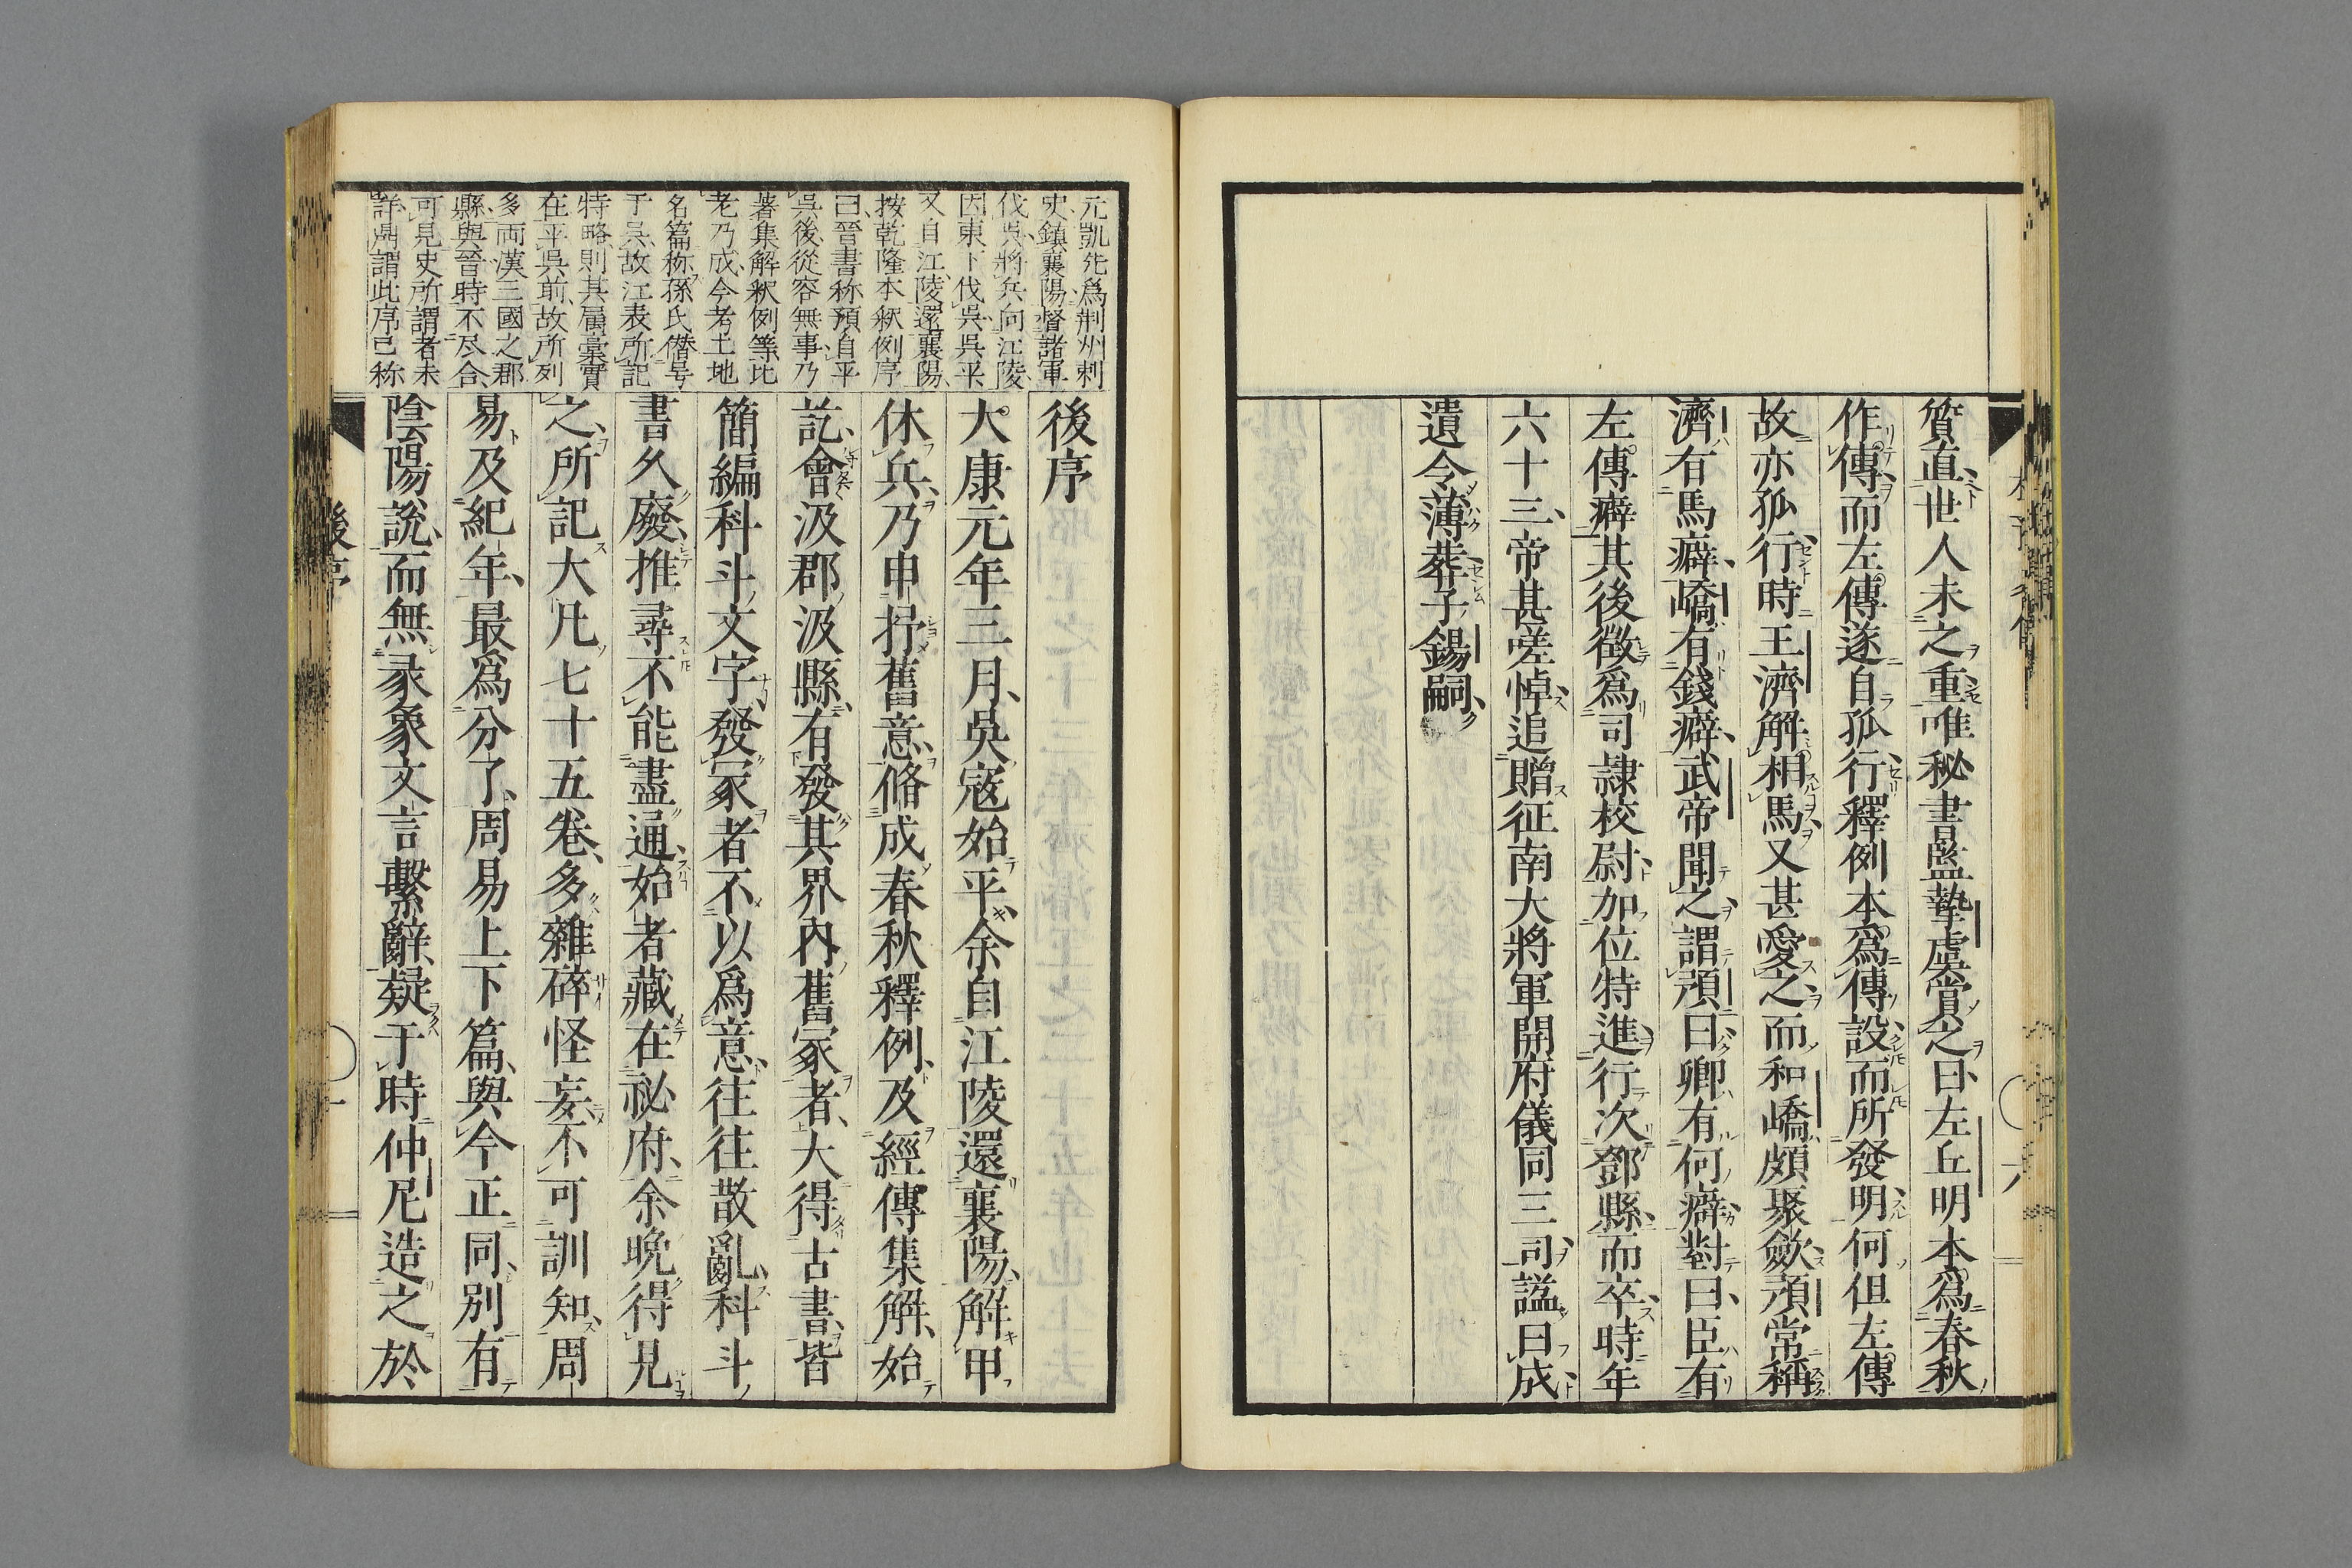 質直世人未之重唯秘書監摯虞賞之曰左丘明本爲春秋
作傳而左傳遂自孤行釋例本爲傳設而所發明何但左傳
故亦孤行時王濟解相馬又甚愛之而和嶠頗聚歛預常稱
濟有馬癖嶠有錢癖武帝聞之謂預曰卿有何癖對曰臣有
左傳癖其後徵爲司隷校尉加位特進行次鄧縣而卒時年
六十三帝甚嗟悼追贈征南大將軍開府儀同三司諡曰成
遺令薄葬子錫嗣
元凱先爲荆州刺
史鎮襄陽督諸軍
伐呉將兵向江陵
因東下伐呉呉平
又自江陵還襄陽
按乾隆本釈例序
曰晉書称預自平
呉後從容無事乃
著集解釈例等比
老乃成今考土地
名篇称孫氏僣号
于呉故江表所記
特略則其属稾實
在平呉前故所列
多両漢三國之郡
縣與晉時不尽合
可見史所謂者未
詳鼎謂此序已称
後序
大康元年三月吳寇始平余自江陵還襄陽解甲
休兵乃申抒舊意脩成春秋釋例及經傳集解始
訖會汲郡汲縣有發其界內舊冢者大得古書皆
簡編科斗文字發冢者不以爲意往往散亂科斗
書久廢推尋不能盡通始者藏在祕府余晩得見
之所記大凡七十五卷多雜碎怪妄不可訓知周
易及紀年最爲分了周易上下篇與今正同別有
陰陽說而無彖象文言繫辭疑于時仲尼造之於
後序